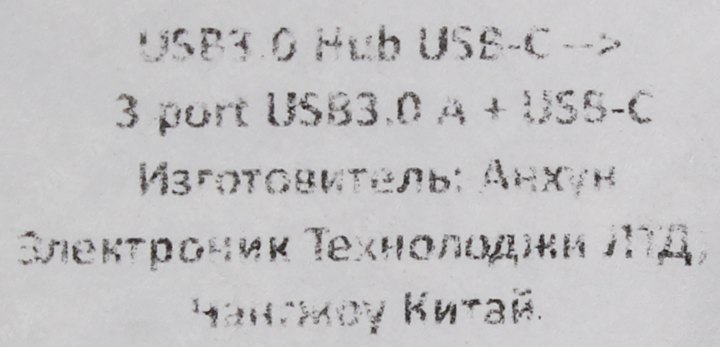 USB3.0 Hub USB-C -->
3 port USB3.0 A + USB-C
Изготовитель: Анхун
Электроник Технолоджи ЛТД,
Чангжоу Китай.